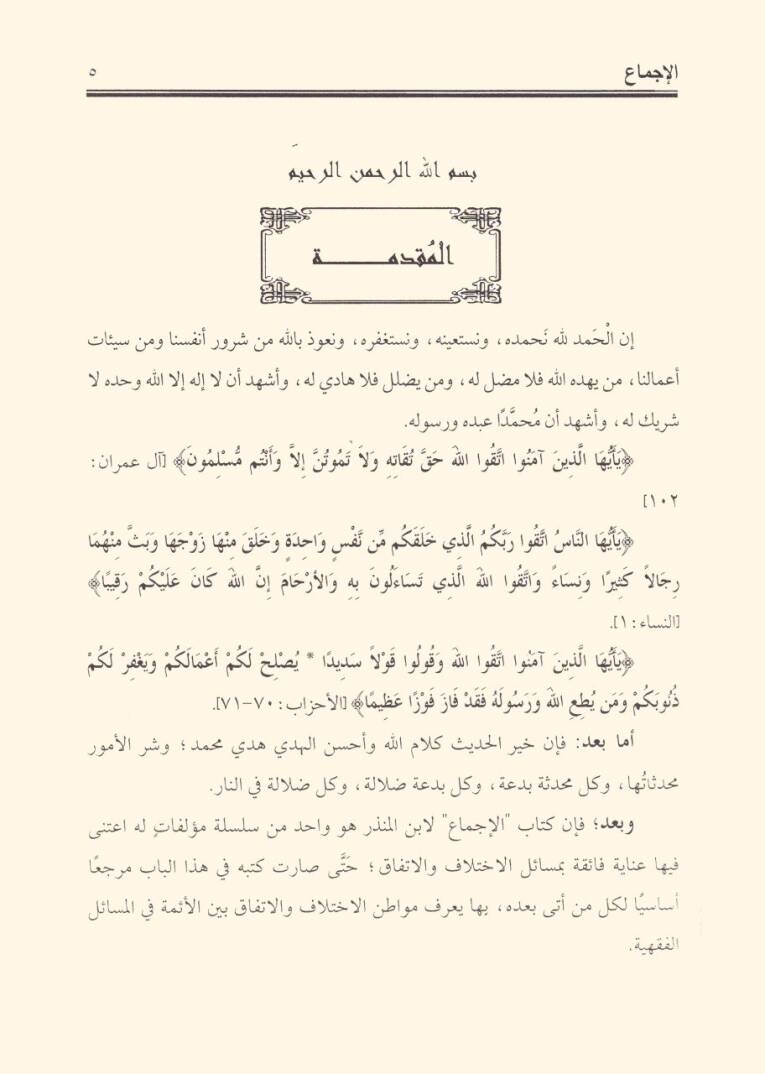 الإجماع ٥
بسم الله الرحمن الرحيم
الْمُقدمـــــــــة
إن الْحَمد لله نَحمده، ونستعينه، ونستغفره، ونعوذ بالله من شرور أنفسنا ومن سيئات
أعمالنا، من يهده الله فلا مضل له، ومن يضلل فلا هادي له، وأشهد أن لا إله إلا الله وحده لا
شريك له، وأشهد أن مُحمَّدًا عبده ورسوله.
﴿يَأَيُّهَا الَّذِينَ آمَنُوا اتَّقُوا اللهَ حَقَّ تُقَاتِهِ وَلاَ تَمُوتُنَّ إِلاَّ وَأَنْتُم مُّسْلِمُونَ﴾ [آل عمران:
١٠٢]
﴿يَأَيُّهَا النَّاسُ اتَّقُوا رَبَّكُمُ الَّذِي خَلَقَكُم مِّن نَّفْسٍ وَاحِدَةٍ وَخَلَقَ مِنْهَا زَوْجَهَا وَبَثَّ مِنْهُمَا
رِجَالاً كَثِيرًا وَنِسَاءً وَاتَّقُوا اللهَ الَّذِي تَسَاءَلُونَ بِهِ وَالأَرْحَامَ إِنَّ اللهَ كَانَ عَلَيْكُمْ رَقِيبًا﴾
[النساء: ١].
﴿يَأَيُّهَا الَّذِينَ آمَنُوا اتَّقُوا اللهَ وَقُولُوا قَوْلاً سَدِيدًا * يُصْلِحْ لَكُمْ أَعْمَالَكُمْ وَيَغْفِرْ لَكُمْ
ذُنُوبَكُمْ وَمَن يُطِعِ اللهَ وَرَسُولَهُ فَقَدْ فَازَ فَوْزًا عَظِيمًا﴾ [الأحزاب: ٧٠-٧١].
أما بعد: فإن خير الحديث كلام الله وأحسن الهدي هدي محمد؛ وشر الأمور
محدثاتُها، وكل محدثة بدعة، وكل بدعة ضلالة، وكل ضلالة في النار.
وبعد؛ فإن كتاب "الإجماع" لابن المنذر هو واحد من سلسلة مؤلفاتٍ له اعتنى
فيها عناية فائقة بمسائل الاختلاف والاتفاق؛ حَتَّى صارت كتبه في هذا الباب مرجعًا
أساسيًا لكل من أتى بعده، بها يعرف مواطن الاختلاف والاتفاق بين الأئمة في المسائل
الفقهية.